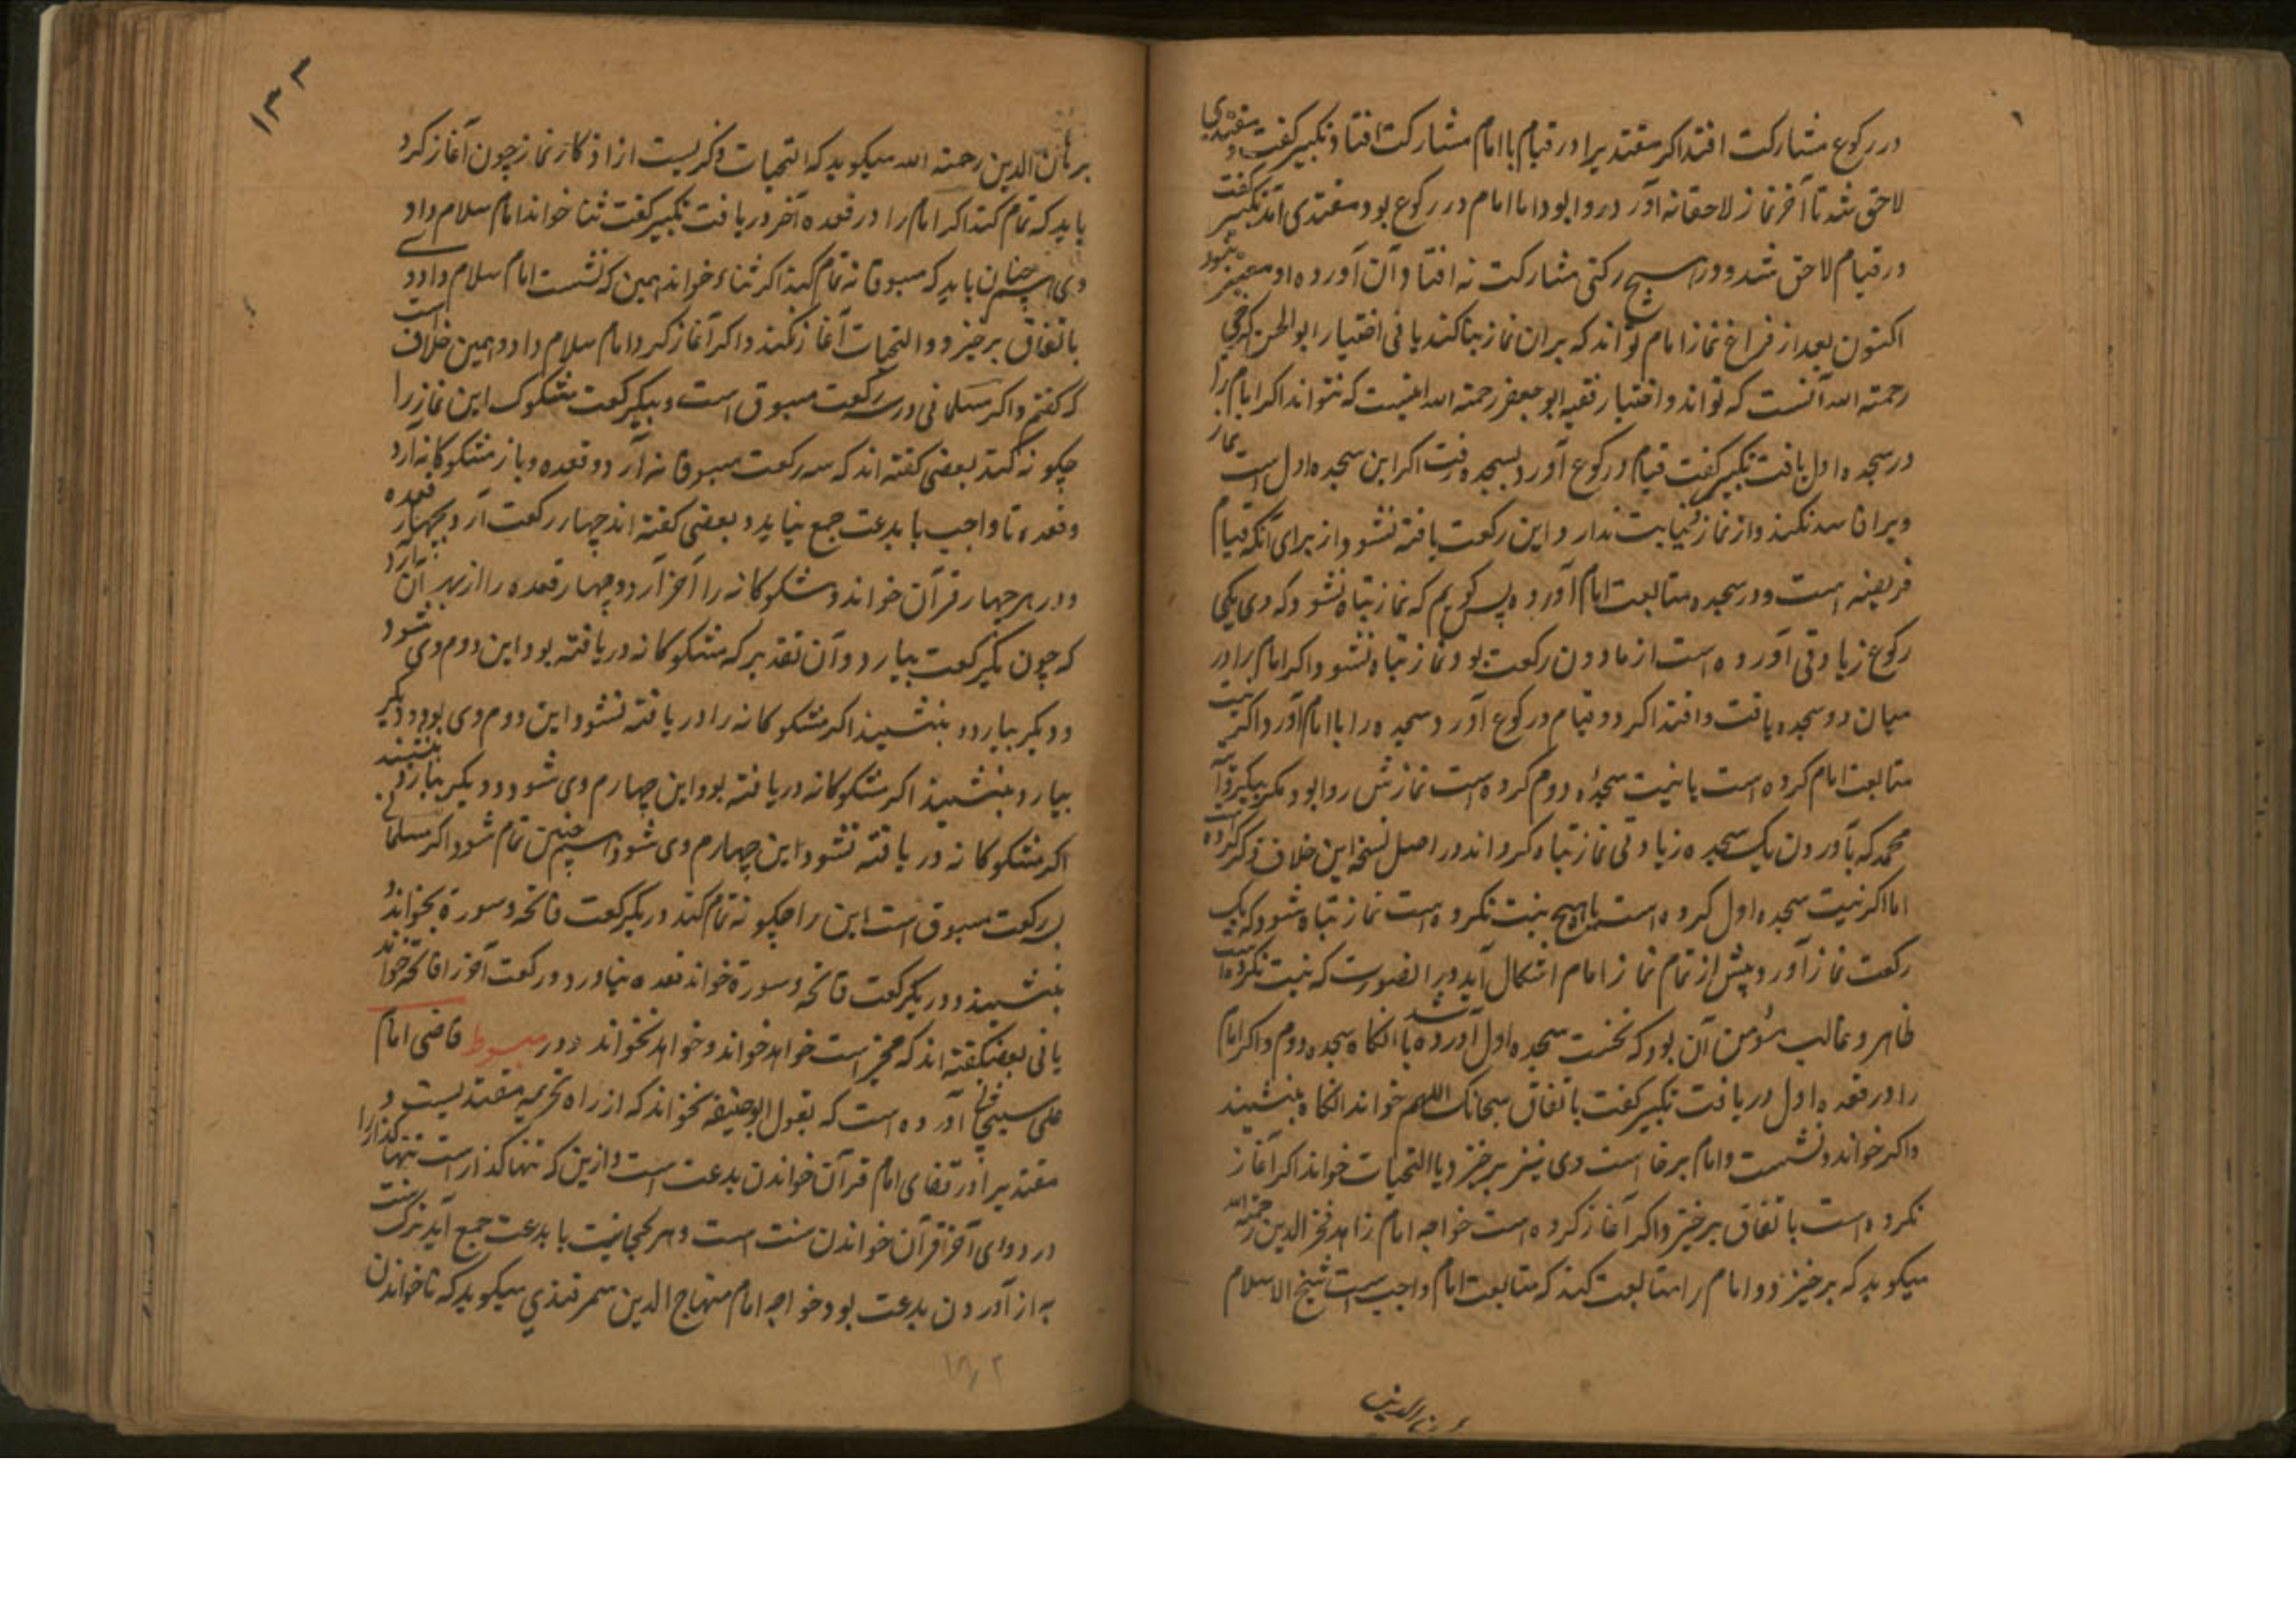 در رکوع مشارکت افتد اکر مقتدیرا در قیام با امام مشارکت افتاد و تکبیر کفت و مقتدی
لاحق شد تا آخر نماز لاحقانه آورد روا بود اما امام در رکوع بود مقتدی آمد تکبیر کفت
در قیام لاحق شد و در هیچ رکنی مشارکت نه افتاد آن آورده او معتبر نبود
اکنون بعد از فراغ نماز امام تواند که بران نماز بنا کند یا نی اختیار ابو الحسن کرخی
رحمته الله آنست که تواند و اختیار فقیه ابو جعفر رحمته الله اینست که نتواند اکر امام را
در سجده اول یافت تکبیر کفت قیام و رکوع آورد بسجده رفت اکر این سجده اول است نماز
ویرا فاسد نکند و از نماز نیابت ندارد و این رکعت یافته نشود از برای آنکه قیام
فریضه است و در سجده متابعت امام آورده پس کویم که نماز تباه نشود که وی یکی
رکوع زیادتی آورده است از مادون رکعت بود نماز تباه نشود و اکر امام را در
میان دو سجده یافت و اقتدا کرد و قیام و رکوع آورد و سجده را با امام آورد اکر نیت
متابعت امام کرده است یا نیت سجدۀ دوم کرده است نمازش روا بود مکر بیکروایت
محمد که بآوردن یک سجده زیادتی نماز تباه کرداند و در اصل نسخه این خلاف ذکر کرده است
اما اکر نیت سجده اول کرده است یا هیچ نیت نکرده است نماز تباه شود که یک
رکعت نماز آورد پیش از تمام نماز امام اشکال آید و برا نصورت که نیت نکرده است
ظاهر و غالب مؤمن آن بود که نخست سجده اول آورده باشد آنکاه سجده دوم و اکر امام
را در قعده اول دریافت تکبیر کفت باتفاق سبحانک اللهم خواند آنکاه بنشیند
و اکر خواند و نشست و امام برخاست وی نیز برخیزد یا التحیات خواند اکر آغاز
نکرده است باتفاق برخیزد و اکر آغاز کرده است خواجه امام زاهد فخر الدین رحمة الله
میکوید که برخیزد و امام را متابعت کند که متابعت امام واجب است شیخ الاسلام
برهان الدین
۱۳۳
برهان الدین رحمته الله میکوید که التحیات ذکریست از اذکار نماز چون آغاز کرد
باید که تمام کند اکر امام را در قعده آخر دریافت تکبیر کفت ثنا خواند امام سلام داد
وی همچنان باید که مسبوقانه تمام کند اکر ثناء خواند همین که نشست امام سلام داد
باتفاق برخیزد و التحیات آغاز نکند و اکر آغاز کرد امام سلام داد و همین خلاف است
که کفتم و اکر مسلمانی در سه رکعت مسبوق است و بیکرکعت مشکوک این نماز را
چکونه کند بعضی کفته اند که سه رکعت مسبوقانه آرد و قعده و باز مشکوکانه آرد
و قعده تا واجب با بدعت جمع نیاید و بعضی کفته اند چهار رکعت آرد بچهار قعده
و در هر چهار قرآن خواند و مشکوکانه را آخر آرد و چهار قعده را از بهر آن آرد
که چون یکرکعت بیارد و آن تقدیر که مشکوکانه دریافته بود این دوم وی شود
و دیکر بیارد و بنشیند اکر مشکوکانه را دریافته نشود این دوم وی بود و دیکر
بیارد و بنشیند اکر مشکوکانه دریافته بود این چهارم وی شود و دیکر بیارد بنشیند
اکر مشکوکانه دریافته نشود این چهارم وی شود همچنین تمام شود اکر مسلمانی
سه رکعت مسبوق است این را چکونه تمام کند در یکرکعت فاتحه و سورة بخواند و
بنشیند و در یکرکعت فاتحه و سورة خواند قعده نیاورد و در رکعت آخر فاتحه خواند
یا نی بعض کفته اند که مخیر است خواهد خواند و خواهد نخواند و در مبسوط قاضی امام
علی سیفی آورده است که بقول ابو حنیفه نخواند که از راه تحریمه مقتدیست و
مقتدیرا در قفای امام قرآن خواندن بدعت است و ازین که تنها کذار است تنها کذار را
در دو ای آخر قرآن خواندن سنت است و هر کجا سنت با بدعت جمع آید ترک سنت
به از آوردن بدعت بود خواجه امام منهاج الدین سمرقندی میکوید که ناخواندن